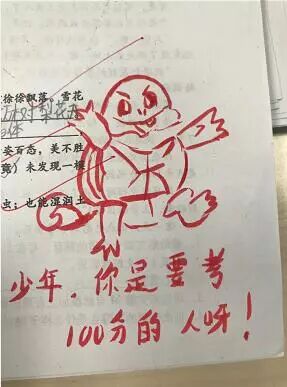 徐徐飘落。雪花
姿百态，美不胜
竟）未发现一模
虫；也能湿润土
少年 你是要考
100分的人呀！